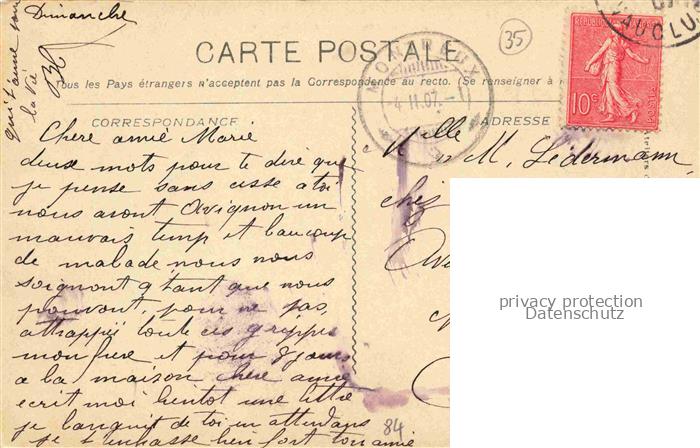 Dimanche
qui t'aime pour
la vie
35
CARTE POSTALE
Tous les Pays étrangers n'acceptent pas la Correspondance au recto. (Se renseigner à
CORRESPONDANCE
ADRESSE
MONTREUX
4 II.07.
VAUCLUSE
10c
POSTES
Chere amie Marie
deux mots pour te dire que
je pense sans cesse a toi
nous avont Avignon un
mauvais temp et beaucoup
de malade nous nous
soignont q tant que nous
pouvont, pour ne pas,
attrappée toute ces grippes
mon frere et pour 8 jours
a la maison chere amie
ecrit moi bientot une lettre
je languit de toi en attendans
je t'enbasse bien fort ton amie
Melle M. Ledermann
chez
84
privacy protection
Datenschutz